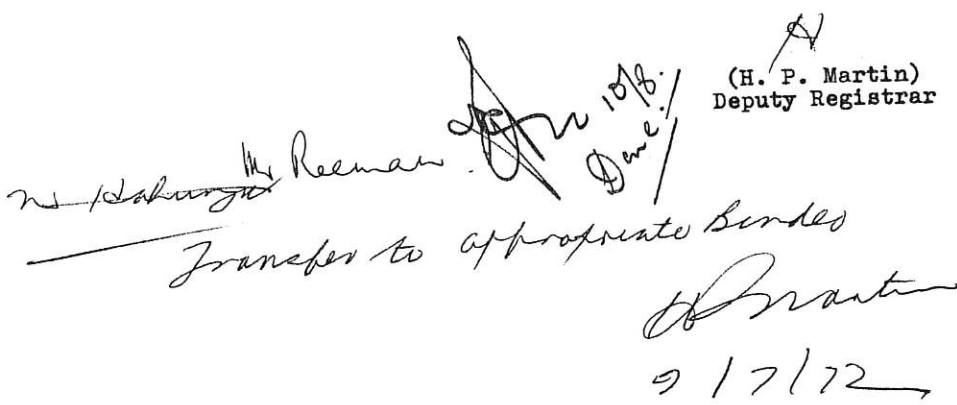 (H. P. Martin)
Deputy Registrar
10/8.
Done!
Mr Reeman
Transfer to appropriate Binder
HP Martin
9/7/72